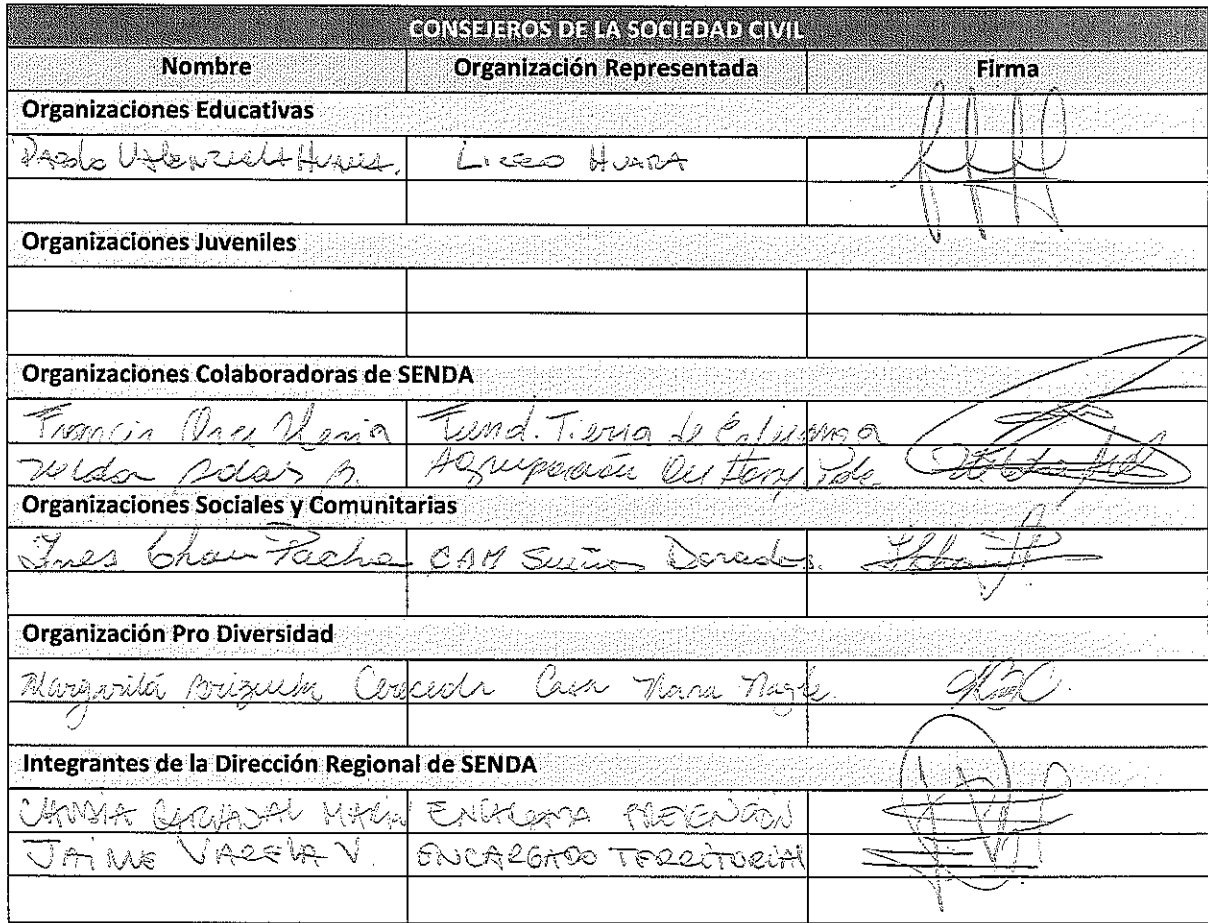 CONSEJEROS DE LA SOCIEDAD CIVIL
Nombre Organización Representada Firma
Organizaciones Educativas
Pablo Valenzuela Liceo Huara
Organizaciones Juveniles
Organizaciones Colaboradoras de SENDA
Francis Fund. Tierra de Esperanza
Agrupación
Organizaciones Sociales y Comunitarias
Ines Chau Pacha CAM Sueños Dorados.
Organización Pro Diversidad
Margarita Brizuela Casa Mara
Integrantes de la Dirección Regional de SENDA
CARVAJAL ENCARGADA PREVENCIÓN
JAIME VARELA V. ENCARGADO TERRITORIAL